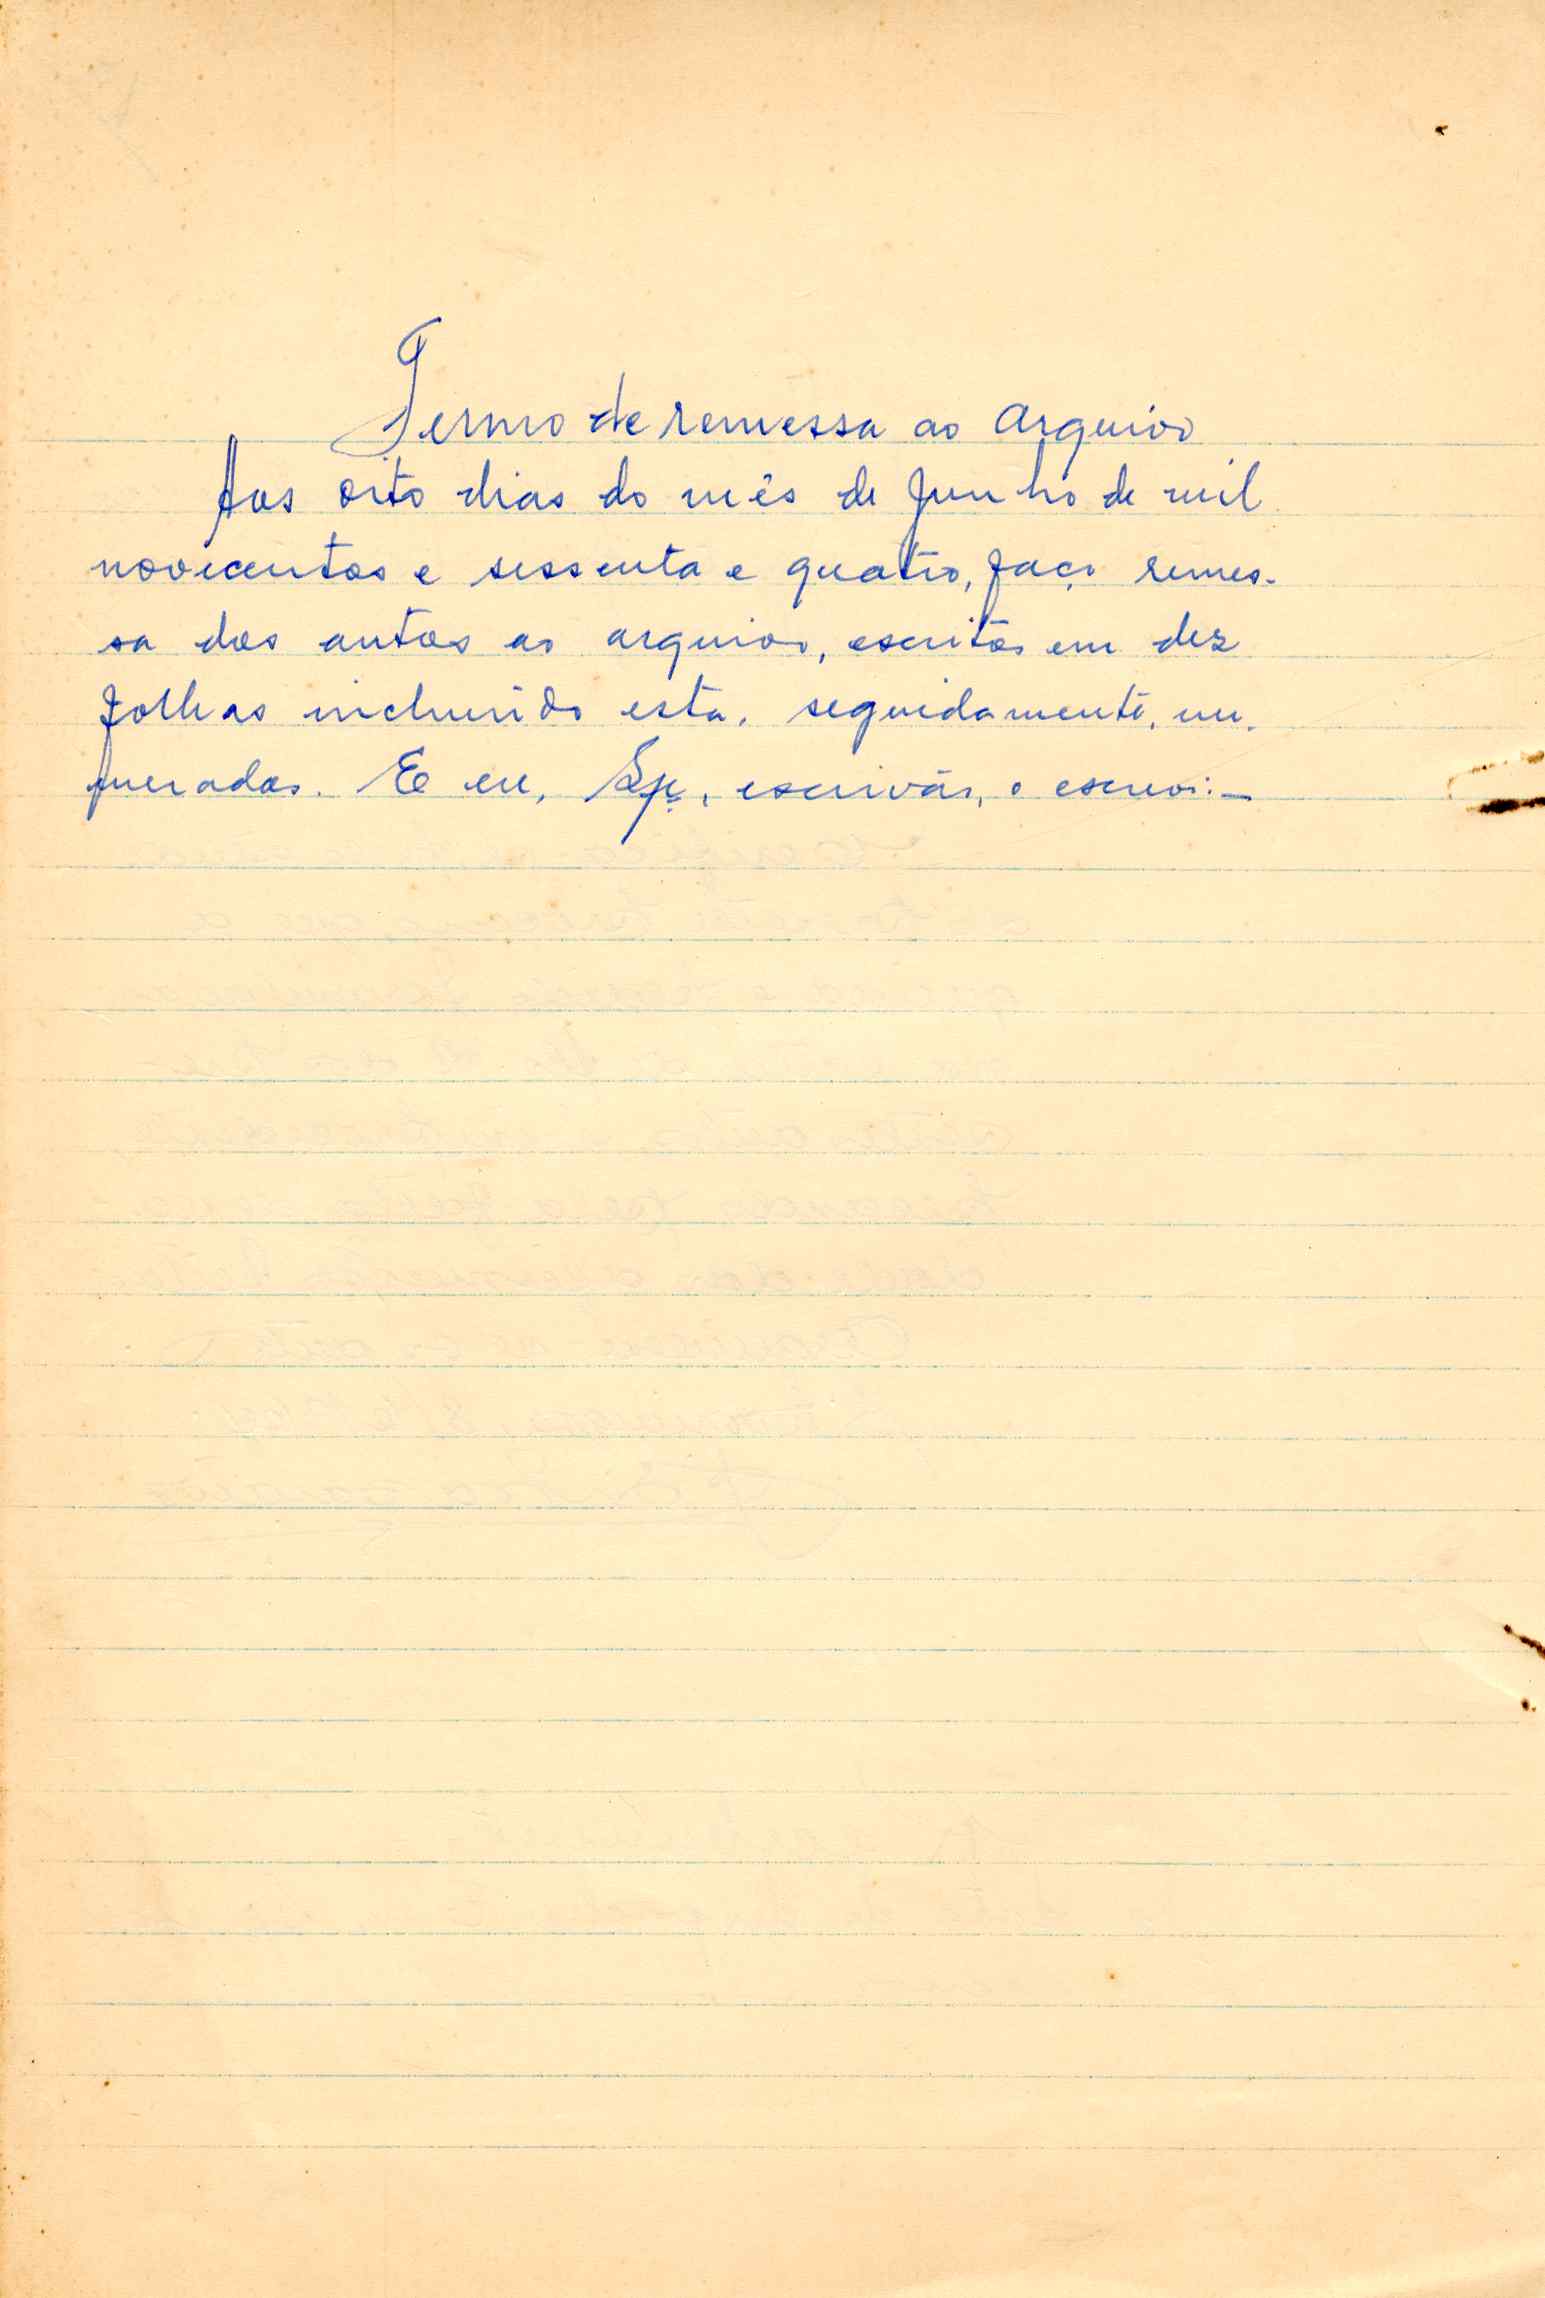 Termo de remessa ao arquivo
Aos oito dias do mês de Junho de mil
novecentos e sessenta e quatro, faço remes-
sa dos autos ao arquivo, escritos em dez
folhas incluindo esta, seguidamente, nu-
meradas. E eu, escrivão, o escrevi:—